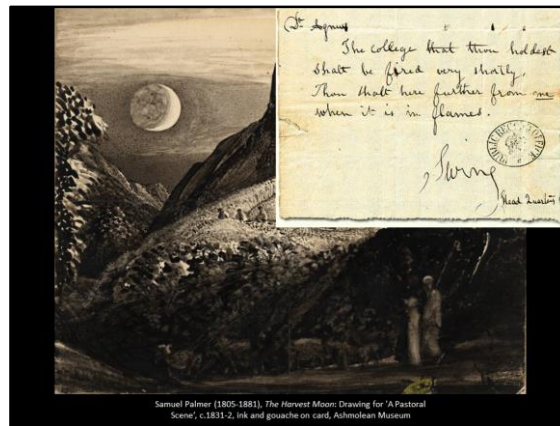 The college that thou holdest
Shalt be fired very shortly
Thou shalt here further from me
when it is in flames.
Swing
Head Quarters
PUBLIC RECORD OFFICE
Samuel Palmer (1805-1881), The Harvest Moon: Drawing for 'A Pastoral
Scene', c.1831-2, ink and gouache on card, Ashmolean Museum